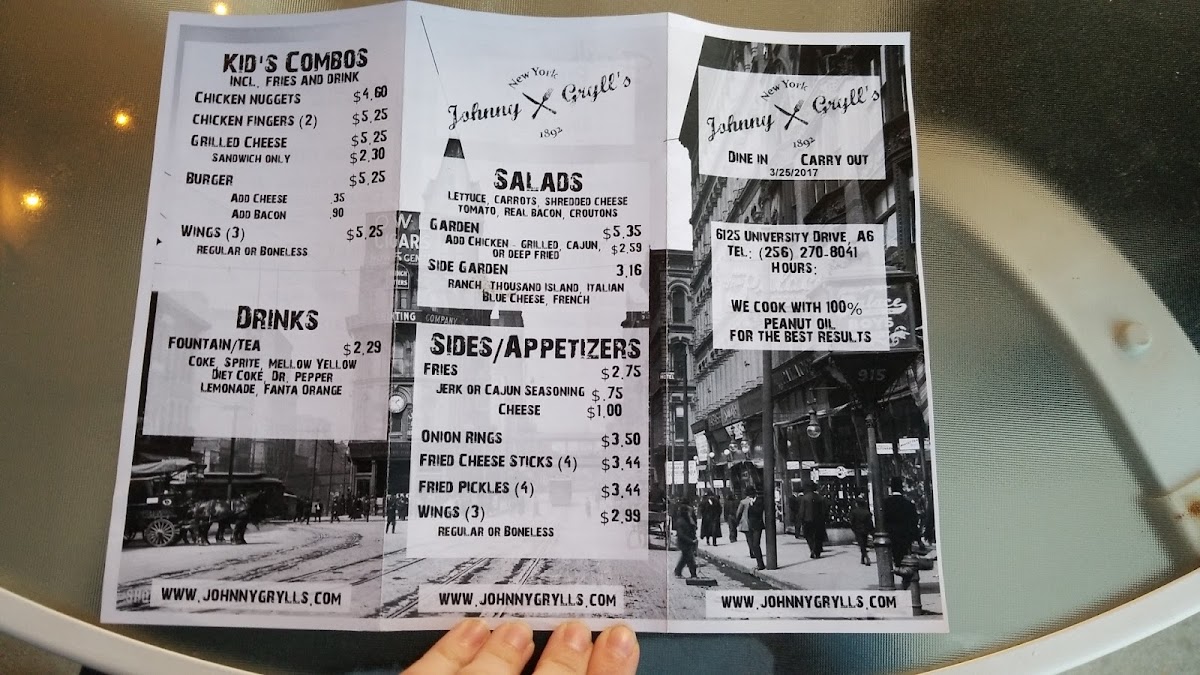 KID'S COMBOS
INCL. FRIES AND DRINK
CHICKEN NUGGETS $4.60
CHICKEN FINGERS (2) $5.25
GRILLED CHEESE $5.25
SANDWICH ONLY $2.30
BURGER $5.25
ADD CHEESE .35
ADD BACON .90
WINGS (3) $5.25
REGULAR OR BONELESS
DRINKS
FOUNTAIN/TEA $2.29
COKE, SPRITE, MELLOW YELLOW
DIET COKE, DR. PEPPER
LEMONADE, FANTA ORANGE
WWW.JOHNNYGRYLLS.COM
New York
Johnny Gryll's
1892
SALADS
LETTUCE, CARROTS, SHREDDED CHEESE
TOMATO, REAL BACON, CROUTONS
GARDEN $5.35
ADD CHICKEN - GRILLED, CAJUN, $2.59
OR DEEP FRIED
SIDE GARDEN 3.16
RANCH, THOUSAND ISLAND, ITALIAN
BLUE CHEESE, FRENCH
COMPANY
SIDES/APPETIZERS
FRIES $2.75
JERK OR CAJUN SEASONING $.75
CHEESE $1.00
ONION RINGS $3.50
FRIED CHEESE STICKS (4) $3.44
FRIED PICKLES (4) $3.44
WINGS (3) $2.99
REGULAR OR BONELESS
WWW.JOHNNYGRYLLS.COM
New York
Johnny Gryll's
1892
DINE IN CARRY OUT
3/25/2017
6125 UNIVERSITY DRIVE, A6
TEL: (256) 270-8041
HOURS:
WE COOK WITH 100%
PEANUT OIL
FOR THE BEST RESULTS
915
WWW.JOHNNYGRYLLS.COM